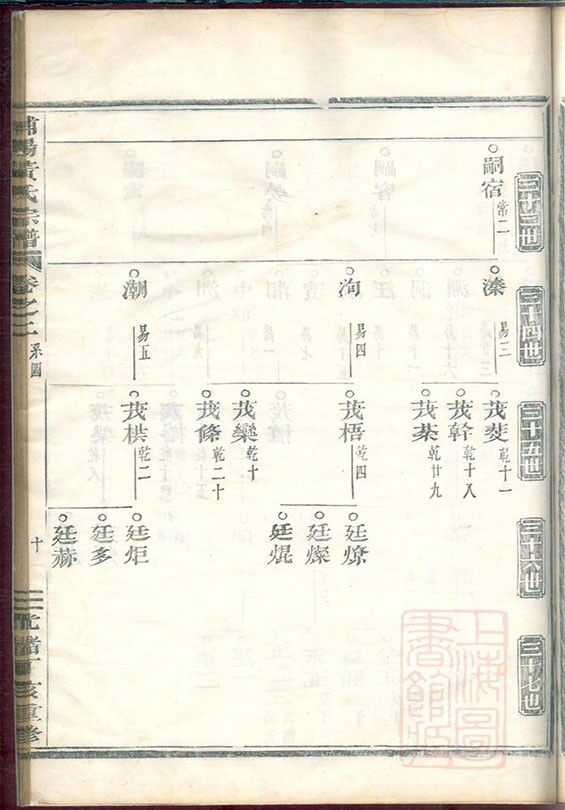 三十三世
嗣宿 常二
三十四世
溱 易三
洵 易四
潮 易五
三十五世
茂㸈 乾十一
茂幹 乾十八
茂棻 乾廿九
茂梧 乾四
茂欒 乾十
茂條 乾二十
茂栱 乾二
三十六世
廷燎
廷燦
廷焜
廷炬
廷多
廷赫
三十七世
上海圖書館藏
浦陽黃氏宗譜
卷之二 系圖
十
光緒丁亥重修